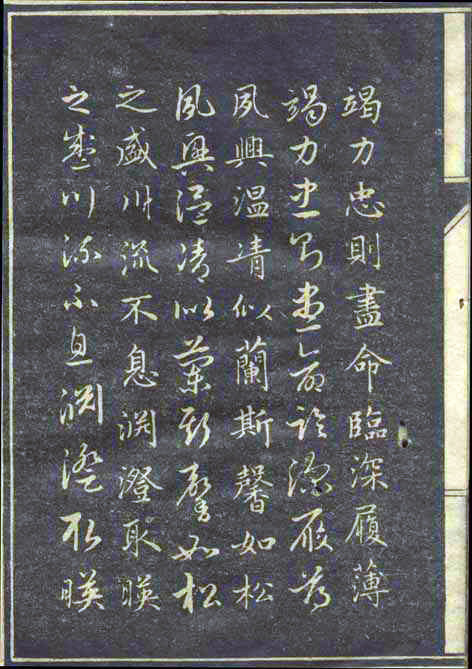 竭力忠則盡命臨深履薄
竭力忠則盡命臨深履薄
夙興温凊似蘭斯馨如松
夙興温凊似蘭斯馨如松
之盛川流不息淵澄取暎
之盛川流不息淵澄取暎